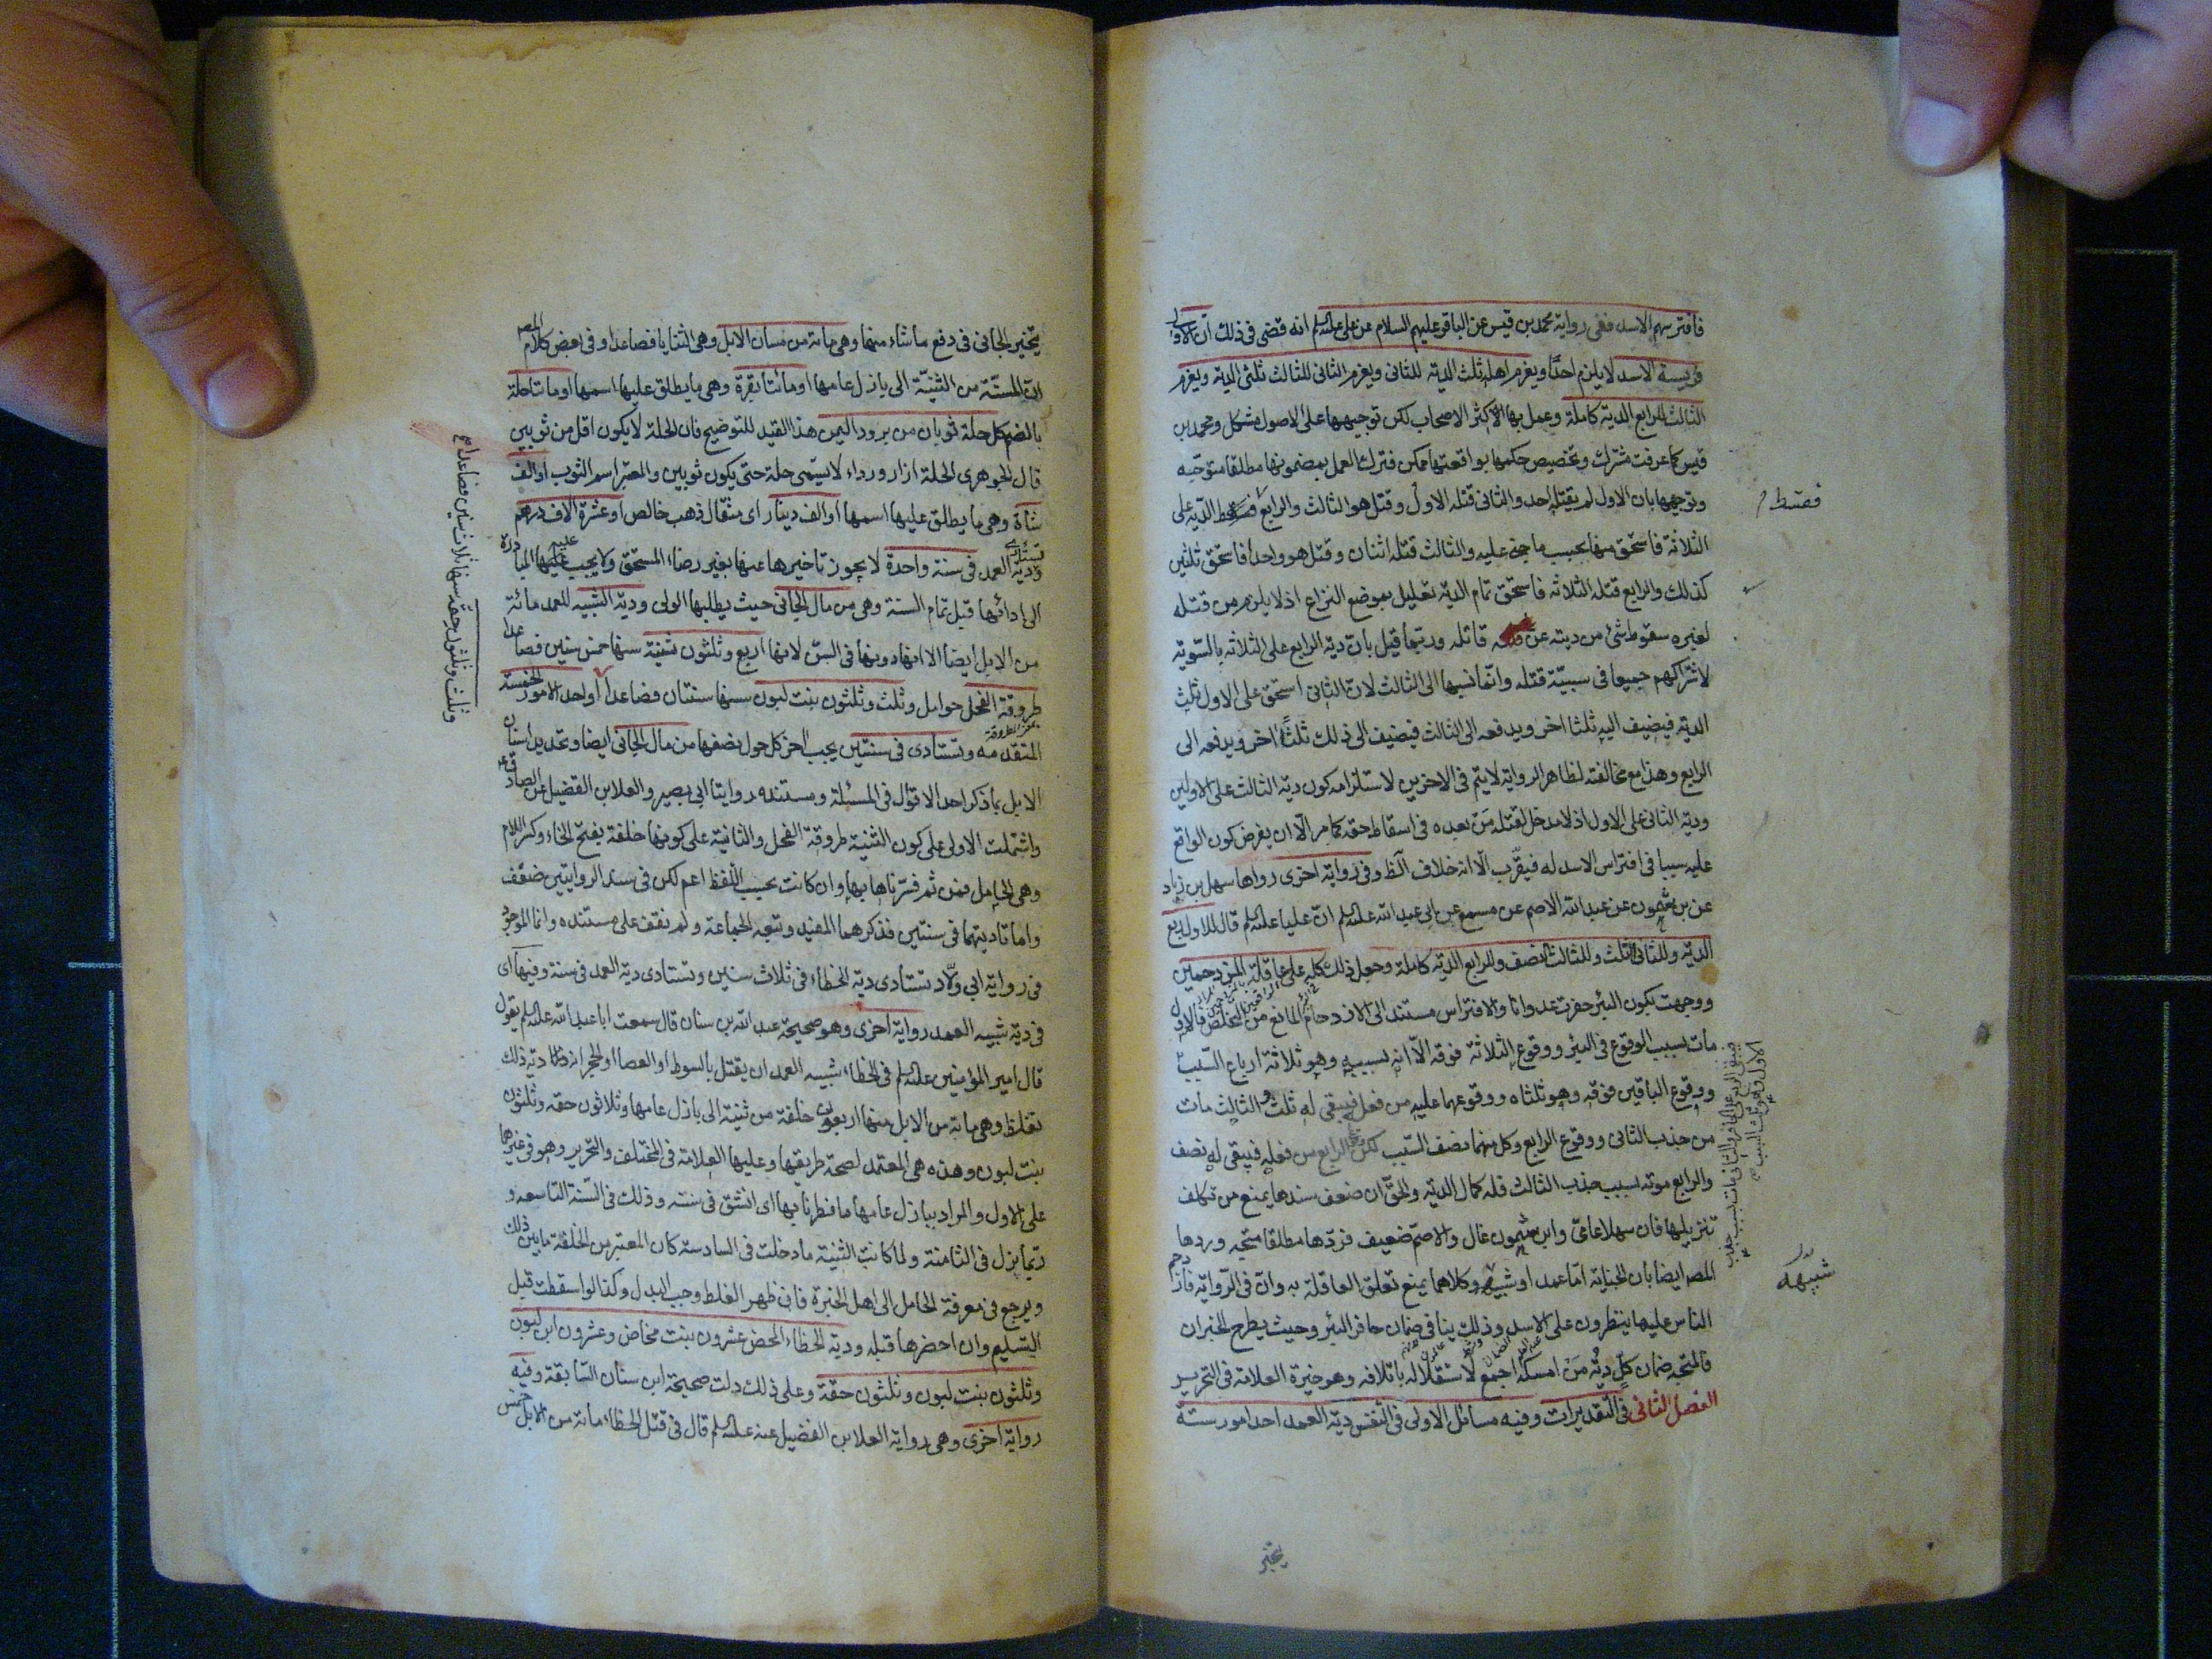 فافترسهم الاسد ففى رواية محمد بن قيس عن الباقر عليهم السلام عن على عليه السلم انه قضى فى ذلك ان الاول
فريسة الاسد لايلزم احدًا ويغرم اهله ثلث الدية للثانى ويغرم الثانى للثالث ثلثى الدية ويغرم
الثالث للرابع الدية كاملة وعمل بها اكثر الاصحاب لكن توجيهها على الاصول مشكل ومحمد بن
قيس كما عرفت مشترك وتخصيص حكمها بواقعتها ممكن فترك العمل بمضمونها مطلقا متوجه
وتوجيهها بان الاول لم يقتله احد والثانى قتله الاول وقتل هو الثالث والرابع فقسط الدية على
الثلاثة فاستحق منها بحسب ما جنى عليه والثالث قتله اثنان وقتل هو واحدا فاستحق ثلثين
كذلك والرابع قتله الثلاثة فاستحق تمام الدية تعليل بموضع النزاع اذ لا يلزم من قتله
لغيره سقوط شئ من ديته عن قاتله وربما قيل بان دية الرابع على الثلاثة بالسوية
لاشتراكهم جميعا فى سببية قتله وانما نسبها الى الثالث لان الثانى استحق على الاول ثلث
الدية فيضيف اليه ثلثا اخر ويدفعه الى الثالث فيضيف الى ذلك ثلثًا اخر ويدفعه الى
الرابع وهذا مع مخالفته لظاهر الرواية لا يتم فى الاخرين لاستلزامه كون دية الثالث على الاولين
ودية الثانى على الاول اذ لا مدخل لقتله من بعده فى اسقاط حقه كما مر الا ان يفرض كون الواقع
عليه سببا فى افتراس الاسد له فيقرب الا انه خلاف الظ وفى رواية اخرى رواها سهل بن زياد
عن بن شمون عن عبد الله الاصم عن مسمع عن ابى عبد الله عليه السلم ان عليا عليه السلم قال للاول ربع
الدية وللثانى الثلث وللثالث النصف وللرابع الدية كاملة وجعل ذلك كله على عاقلة المزدحمين
ووجهت بكون البئر حفرت عدوانا والافتراس مستندا الى الازدحام المانع من التخلص فالاول
مات بسبب الوقوع فى البئر ووقوع الثلاثة فوقه الا انه بسببه وهو ثلاثة ارباع السبب
ووقوع الباقين فوقه وهو ثلثاه ووقوعهما عليه من فعله فيبقى له ثلث والثالث مات
من جذب الثانى ووقوع الرابع وكل منهما نصف السبب لكن الرابع من فعله فيبقى له نصف
والرابع موته بسبب جذب الثالث فله كمال الدية والحق ان ضعف سندها يمنع من تكلف
تنزيلها فان سهلا عامى وابن شمون غال والاصم ضعيف فردها مطلقا متجه وردها
المصر ايضا بان الجناية اما عمد او شبيهه وكلاهما يمنع تعلق العاقلة به وان فى الرواية فازدحم
الناس عليها ينظرون على الاسد وذلك ينافى ضمان حافر البئر وحيث يطرح الخبران
فالمتجه ضمان كل دية من امسكه اجمع لاستقلاله باتلافه وهو خيرة العلامة فى التحرير
الفصل الثانى فى التقديرات وفيه مسائل الاولى فى النفس دية العمد احد امور ستة
يتخير
فقسط
شبيهه
يتخير الجانى فى دفع ما شاء منها وهى مائة من مسان الابل وهى الثنايا فصاعدا وفى بعض كلام المصر
ان المسنة من الثنية الى بازل عامها او مائتا بقرة وهى ما يطلق عليها اسمها او مائتا حلة
بالضم كل حلة ثوبان من برود اليمن هذا القيد للتوضيح فان الحلة لا يكون اقل من ثوبين
قال الجوهرى الحلة ازار ورداء لا تسمى حلة حتى يكون ثوبين والمعتبر اسم الثوب او الف
شاة وهى ما يطلق عليها اسمها او الف دينار اى مثقال ذهب خالص او عشرة الاف درهم
وتستادى دية العمد فى سنة واحدة لا يجوز تاخيرها عنها بغير رضاء المستحق ولا يجب عليه المبادرة
الى ادائها قبل تمام السنة وهى من مال الجانى حيث يطلبها الولى ودية الشبيه للعمد مائة
من الابل ايضا الا انها دونها فى السن لانها اربع وثلثون ثنية سنها خمس سنين فصاعدا
طروقة الفحل حوامل وثلث وثلثون بنت لبون سنها سنتان فصاعدا او احد الامور الخمسة
المتقدمة وتستادى فى سنتين يجب اخر كل حول نصفها من مال الجانى ايضا وتحديد اسنان
الابل بما ذكر احد الاقوال فى المسئلة ومستنده روايتا ابى بصير والعلا بن الفضيل عن الصادق ع
واشتملت الاولى على كون الثنية طروقة الفحل والثانية على كونها خلفة بفتح الخاء وكسر اللام
وهى الحامل فمن ثم فسرناها بها وان كانت بحسب اللفظ اعم لكن فى سند الروايتين ضعف
واما تاديتهما فى سنتين فذكرهما المفيد وتبعه الجماعة ولم نقف على مستنده وانما الموجود
فى رواية ابى ولاد تستادى دية الخطأ فى ثلاث سنين وتستادى دية العمد فى سنة وفيها اى
فى دية شبيه العمد رواية اخرى وهو صحيحة عبد الله بن سنان قال سمعت ابا عبد الله عليه السلم يقول
قال امير المؤمنين عليه السلم فى الخطاء شبيه العمد ان يقتل بالسوط او العصا او الحجر ان دية ذلك
تغلظ وهى مائة من الابل منها اربعون خلفة من ثنية الى بازل عامها وثلاثون حقة وثلثون
بنت لبون وهذه هى المعتمد لصحة طريقها وعليها العلامة فى المختلف والتحرير وهو فى غيرهما
على الاول والمراد ببازل عامها ما فطر نابها اى انشق فى سنته وذلك فى السنة التاسعة و
ربما بزل فى الثامنة ولما كانت الثنية ما دخلت فى السادسة كان المعتبر من الخلفة ما بين ذلك
ويرجع فى معرفة الحامل الى اهل الخبرة فان ظهر الغلط وجب البدل وكذا لو اسقطت قبل
التسليم وان احضرها قبله ودية الخطاء المحض عشرون بنت مخاض وعشرون ابن لبون
وثلثون بنت لبون وثلثون حقة وعلى ذلك دلت صحيحة ابن سنان السابقة وفيه
رواية اخرى وهى رواية العلا بن الفضيل عنه عليه السلم قال فى قتل الخطاء مائة من الابل خمس
وثلث وثلثون حقة سنها ثلاث سنين فصاعدا